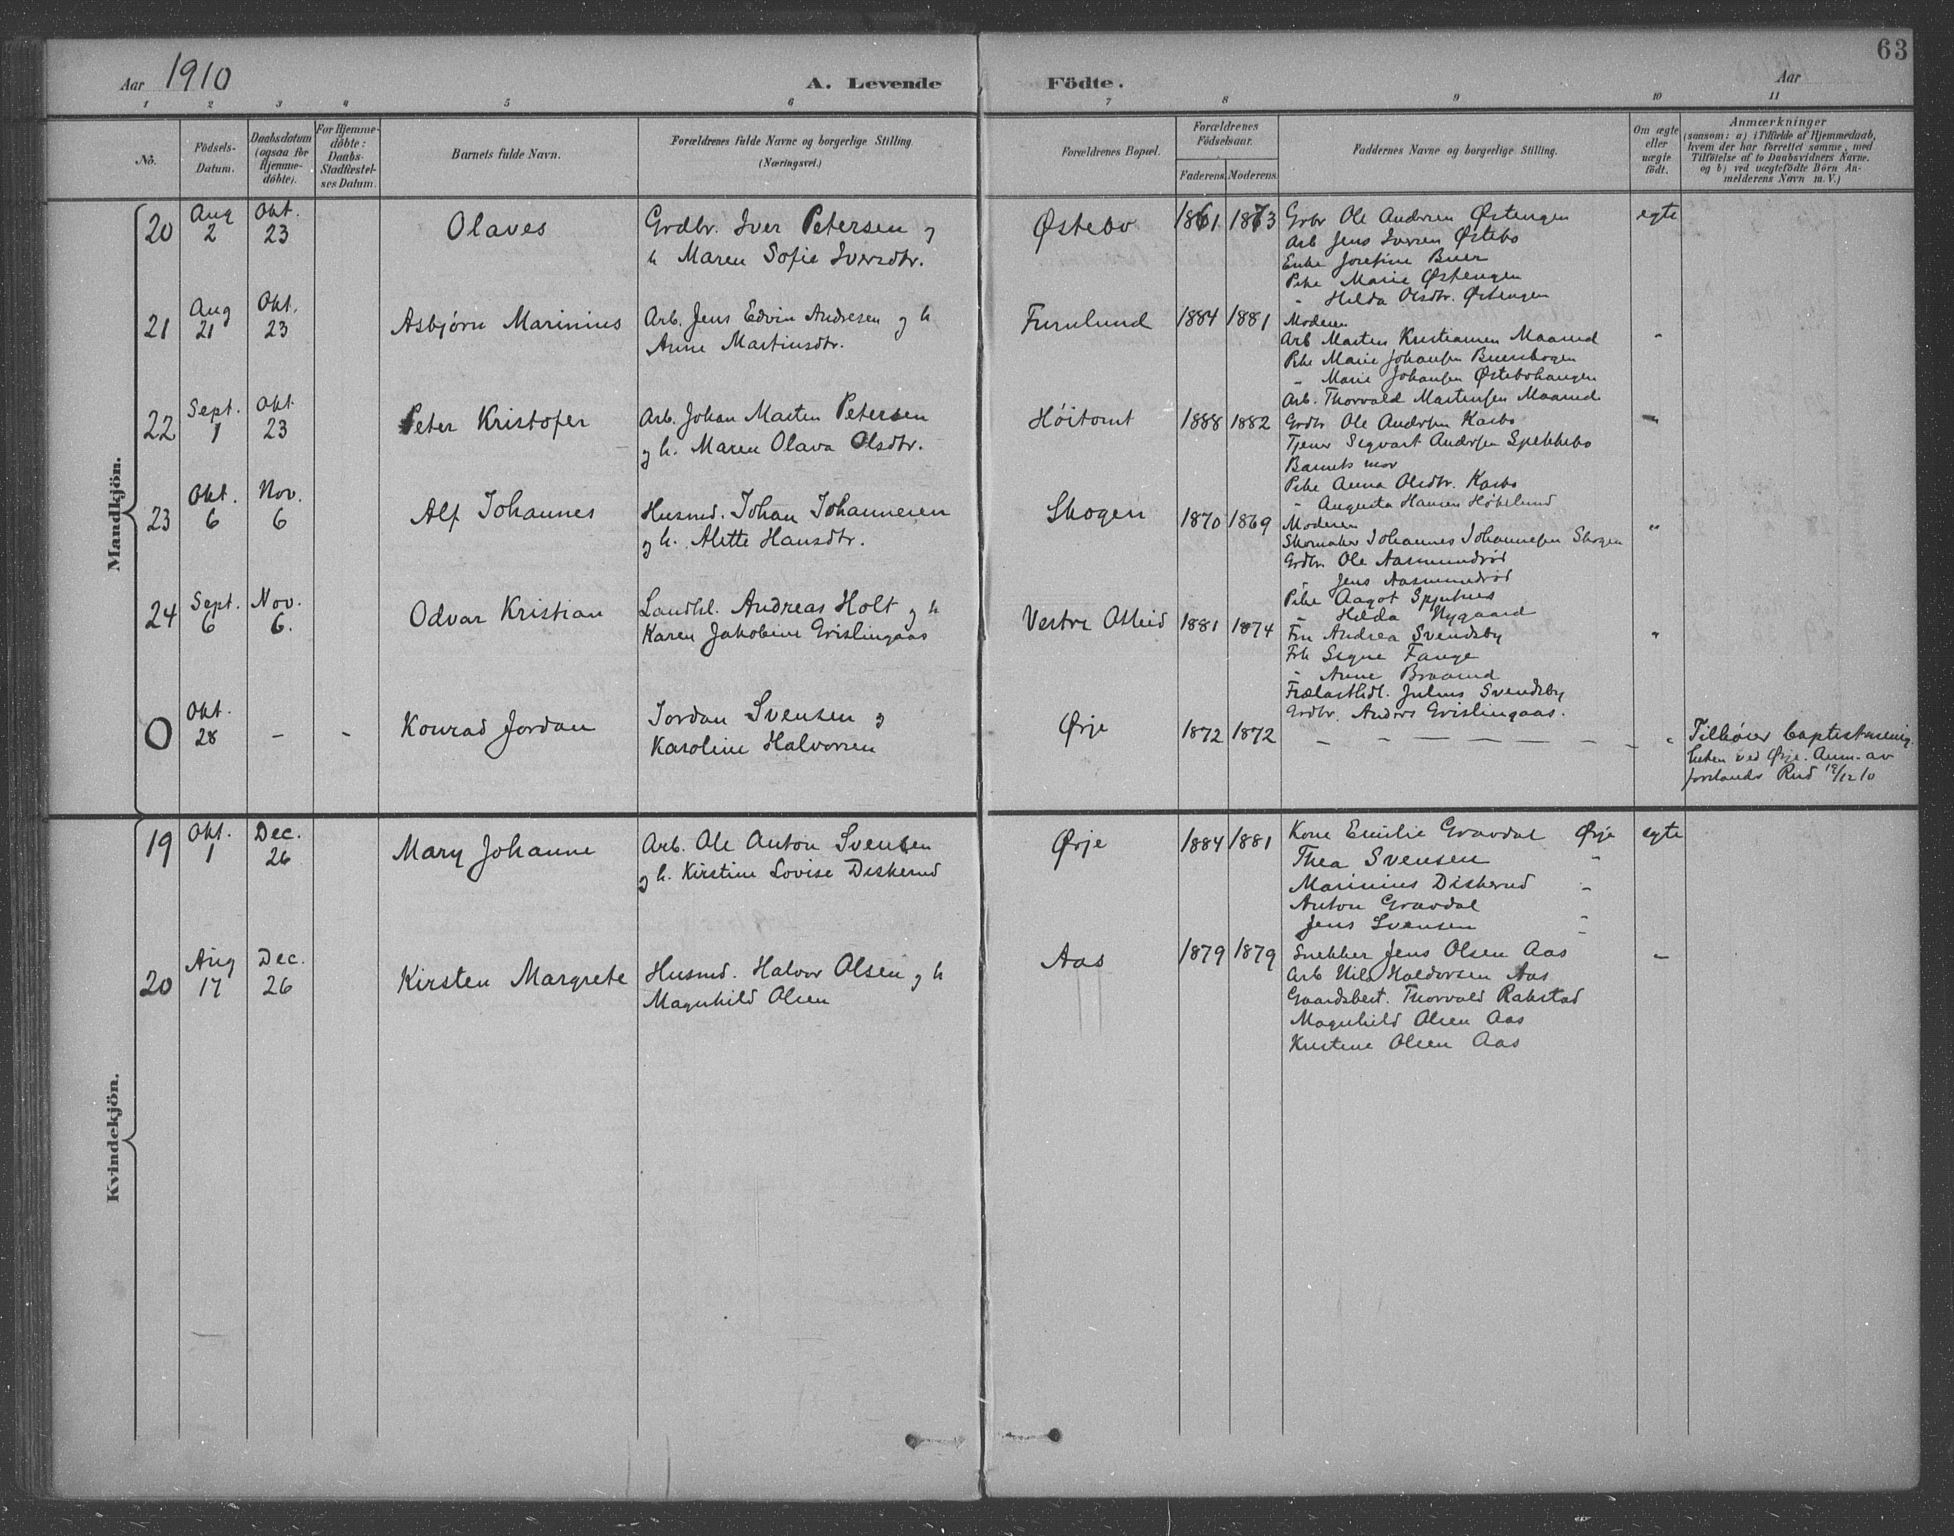 Aar 1910 A. Levende Födte. Aar 63
1 2 3 4 5 6 7 8 9 10 11
No.
Födsels-Datum.
Daabsdatum (ogsaa for Hjemme-döbte).
For Hjemme-döbte: Daabs-Stadfæstel-ses Datum.
Barnets fulde Navn.
Forældrenes fulde Navne og borgerlige Stilling (Næringsvei.)
Forældrenes Bopæl.
Forældrenes Födselsaar.
Faderens. Moderens.
Faddernes Navne og borgerlige Stilling.
Om ægte eller uægte födt.
Anmærkninger
(saasom: a) i Tilfælde af Hjemmedaab,
hvem der har forrettet samme, med
Tilföielse af to Daabsvidners Navne,
og b) ved uægtefödte Börn An-
melderens Navn m. V.)
Mandkjön.
20 Aug 2 Okt. 23 Olaves
Grdbr. Iver Petersen og
h Maren Sofie Iversdtr.
Østebo 1861 1873
Grbr Ole Andersen Østengen
Arb Jens Iversen Østebo
Enke Josefine Buer
Pike Marie Østengen
" Hilda Olsdtr. Østengen
egte
21 Aug 21 Okt. 23 Asbjørn Marinius
Arb. Jens Edvin Andresen og h
Anne Martinsdtr.
Furulund 1884 1881
Moderen
Arb Martin Kristiansen Maarud
Pike Marie Johansen Buersbogen
" Marie Johansen Østebohaugen
Arb. Thorvald Martinsen Maarud
"
22 Sept. 1 Okt 23 Peter Kristofer
Arb. Johan Martin Petersen
og h. Maren Olava Olsdtr.
Høitomt 1888 1882
Grdbr Ole Andersen Kasbo
Tjener Sigvart Andersen Spekkebo
Barnets mor
Pike Anna Olsdtr. Kasbo
" Augusta Hansen Høkelund
"
23 Okt. 6 Nov. 6 Alf Johannes
Husmd. Johan Johannesen
og h. Alette Hansdtr.
Skogen 1870 1869
Moderen
Skomaker Johannes Johannesen Skogen
Grdbr. Ole Aasmundrød
" Jens Aasmundrød
Pike Aagot Spjutnes
" Hilda Nygaard
"
24 Sept. 6 Nov. 6. Odvar Kristian
Landhl. Andreas Holt og h
Karen Jakobine Grislingaas
Vestre Otteid 1881 1874
Fru Andrea Svendsby
Frk Signe Fange
" Anne Braarud
Frælasthdl. Julius Svendsby
Grdbr. Anders Grislingaas.
"
0 Okt. 28 - - Konrad Jordan
Jordan Svensen og
Karoline Halvorsen
Ørje 1872 1872
— — — — — — — "
Tilhører baptistmenig-
heten ved Ørje. Anm. av
forstander Rud 19/12 10
Kvindekjön.
19 Okt. 1 Dec. 26 Mary Johanne
Arb. Ole Anton Svensen
og h. Kirstine Lovise Diskerud
Ørje 1884 1881
Kone Emilie Gravdal Ørje
Thea Svensen "
Marinius Diskerud "
Anton Gravdal
Jens Svensen "
egte
20 Aug 17 Dec. 26 Kirsten Margrete
Husmd. Halvor Olsen og h
Magnhild Olsen
Aas 1879 1879
Snekker Jens Olsen Aas
Arb Nils Haldorsen Aas
Gaardsbest. Thorvald Rakstad
Magnhild Olsen Aas
Kristine Olsen Aas
"